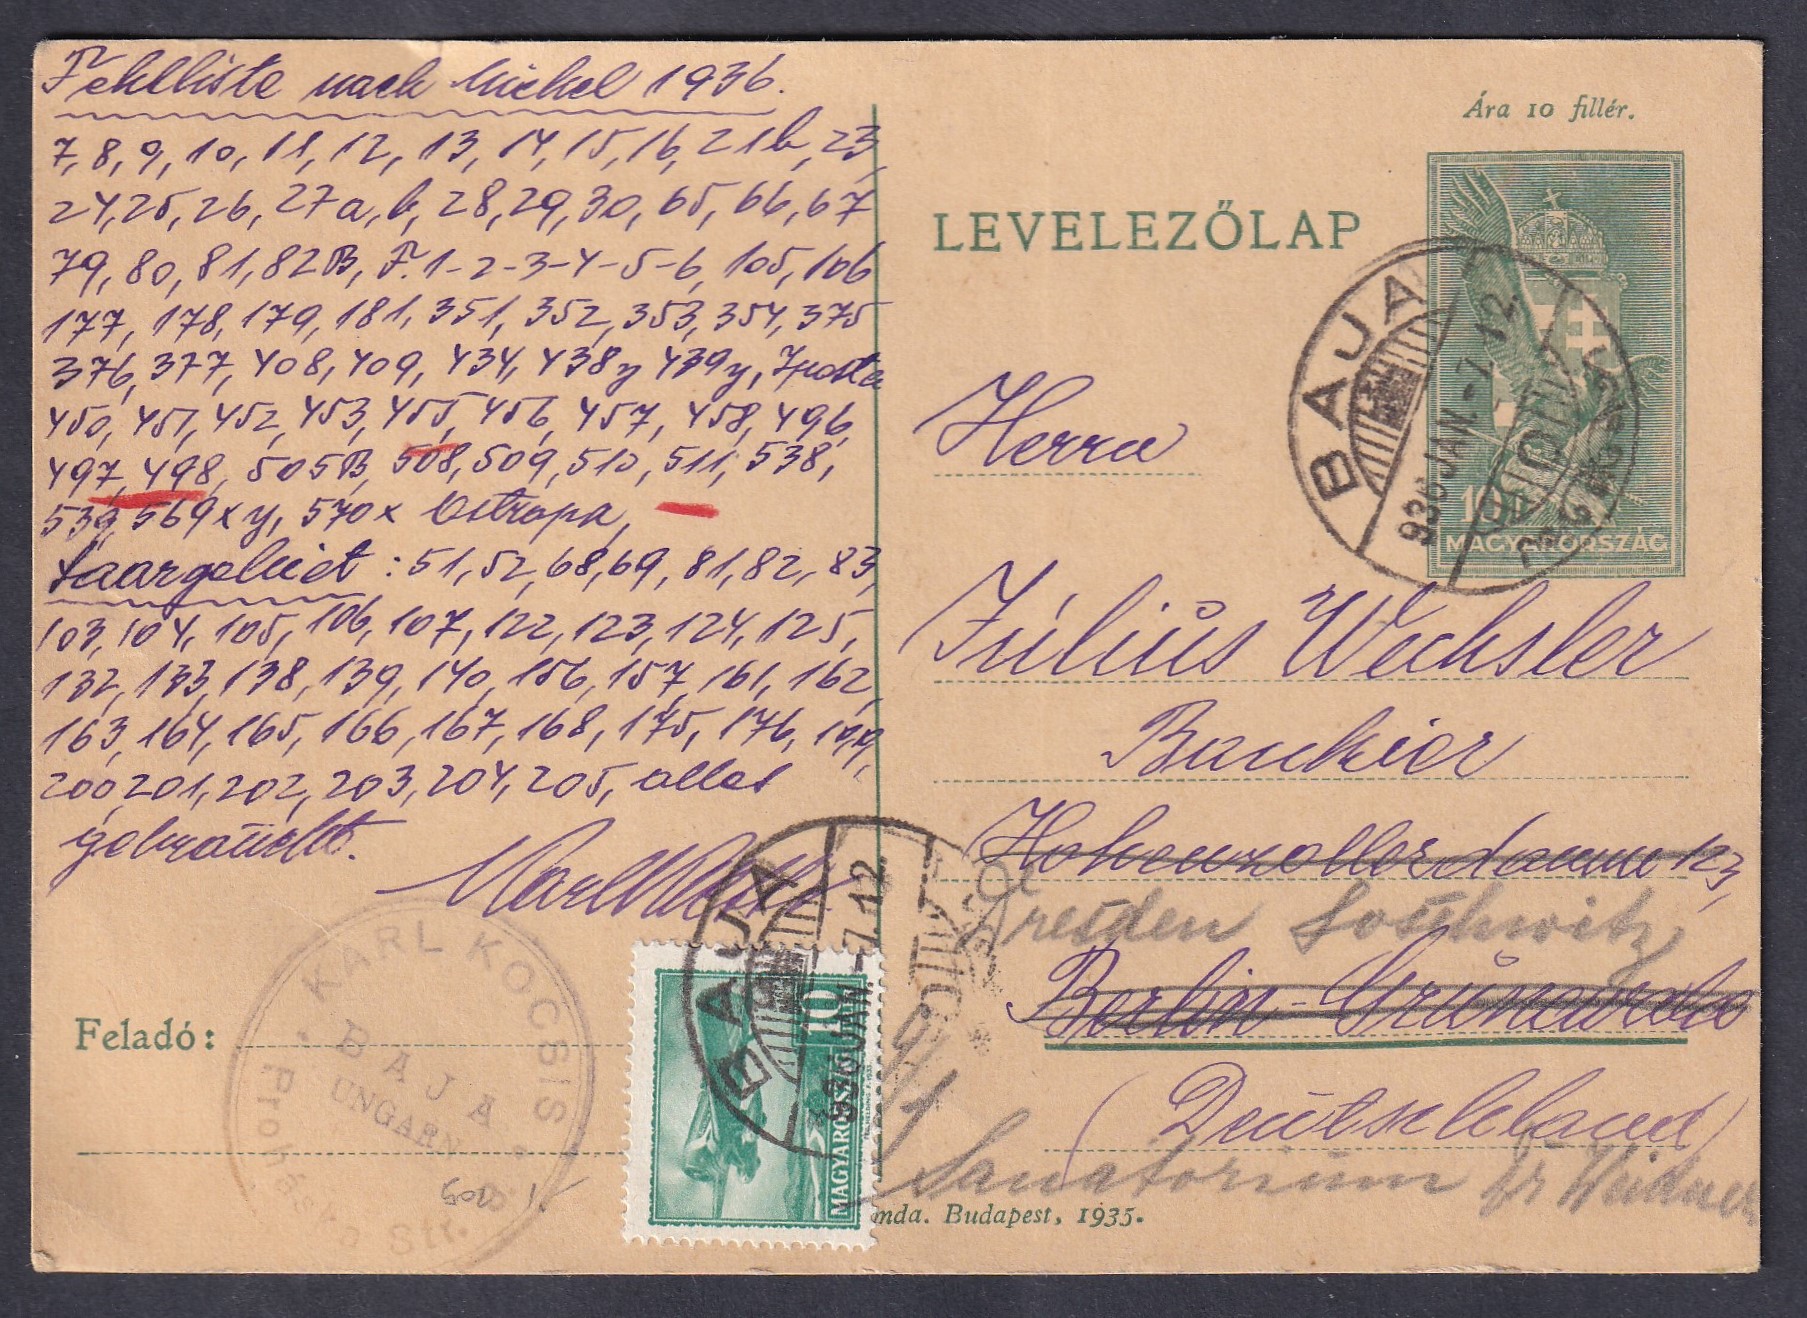 Fehlliste nach Michel 1936.
7, 8, 9, 10, 11, 12, 13, 14, 15, 16, 21b, 23,
24, 25, 26, 27a, b, 28, 29, 30, 65, 66, 67
79, 80, 81, 82B, F. 1-2-3-4-5-6, 105, 106
177, 178, 179, 181, 351, 352, 353, 354, 375
376, 377, 408, 409, 434, 438y 439y,
450, 451, 452, 453, 455, 456, 457, 458, 496,
497, 498, 505B, 508, 509, 510, 511, 538,
539, 569xy, 570x Ostropa,
Saargebiet: 51, 52, 68, 69, 81, 82, 83,
103, 104, 105, 106, 107, 122, 123, 124, 125,
132, 133, 138, 139, 140, 156, 157, 161, 162,
163, 164, 165, 166, 167, 168, 175, 176, 199,
200, 201, 202, 203, 204, 205, alles
gebraucht.
KARL KOCSIS
BAJA
UNGARN
Prohászka Str.
Feladó:
BAJA
936 JAN. -7. 12
10
MAGYARORSZÁG
Ára 10 fillér.
LEVELEZŐLAP
BAJA
936 JAN. -7. 12
10
MAGYARORSZÁG
Herrn
Július Wechsler
Bankier
Hohenzollerdamm 123,
Dresden Loschwitz
Berlin-Grünewald
(Deutschland)
Sanatorium Dr Weidner
mda. Budapest, 1935.